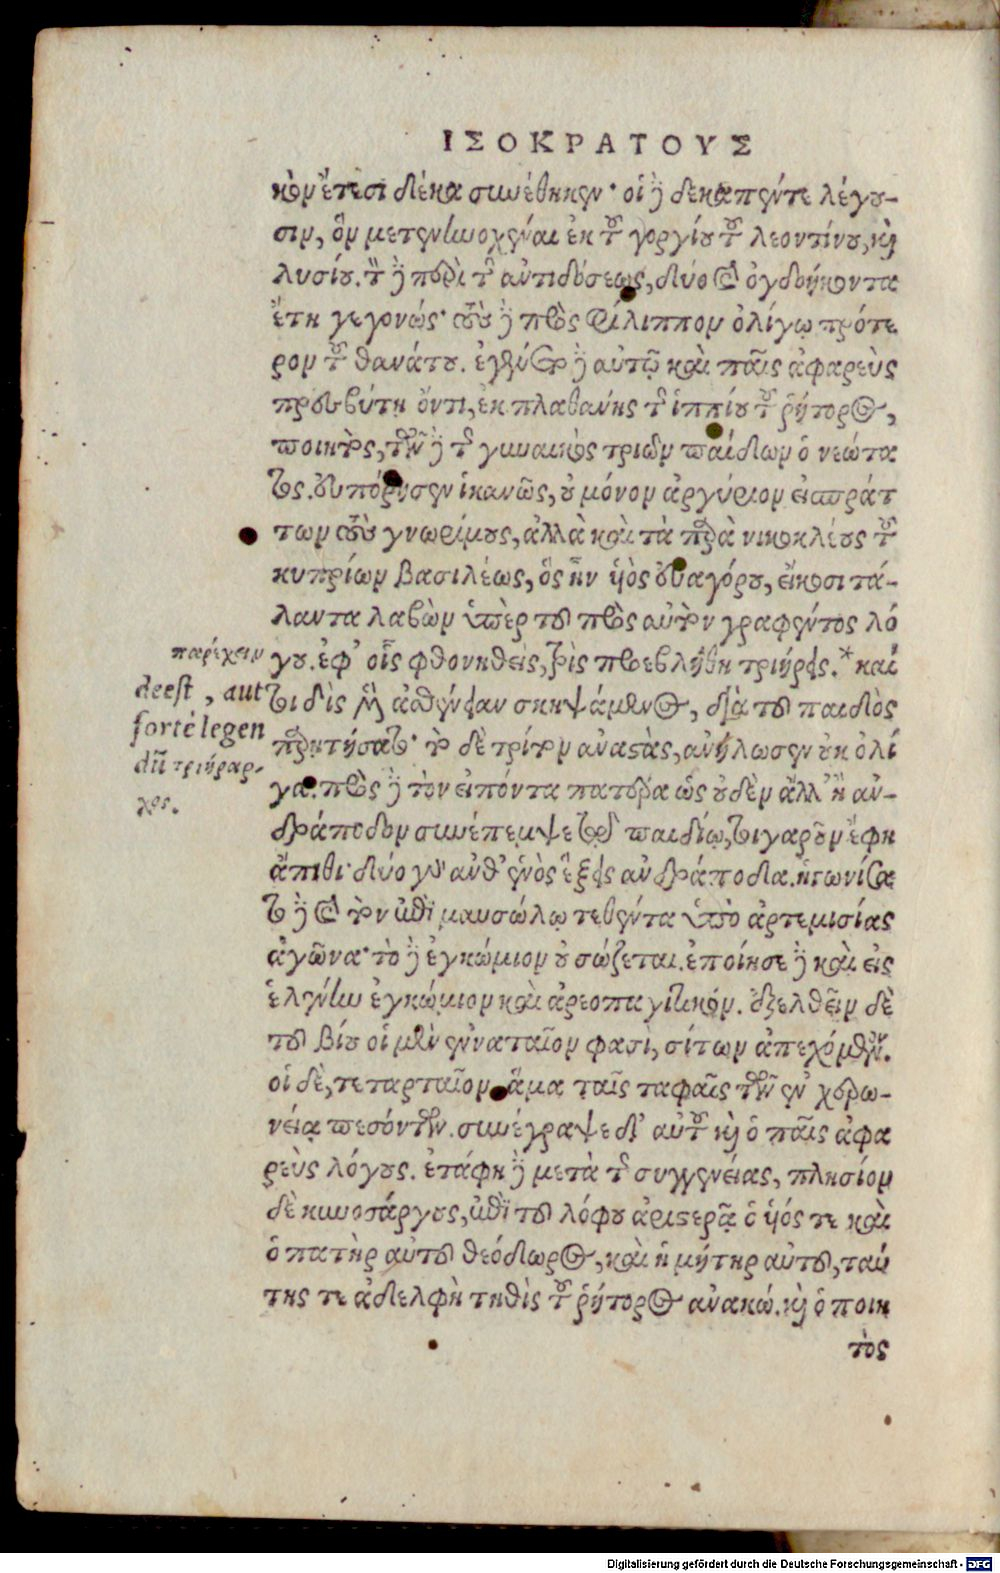 ΙΣΟΚΡΑΤΟΥΣ
κὸν ἔτεσι δέκα συνέθηκεν· οἱ δὲ δεκαπέντε λέγου-
σιν, ὃν μετενηνοχέναι ἐκ τοῦ γοργίου τοῦ λεοντίνου, καὶ
λυσίου. τὸν δὲ περὶ τῆς ἀντιδόσεως, δύο καὶ ὀγδοήκοντα
ἔτη γεγονώς· τοὺς δὲ πρὸς φίλιππον ὀλίγῳ πρότε
ρον τοῦ θανάτου. ἐγένετο δὲ αὐτῷ καὶ παῖς ἀφαρεὺς
πρεσβύτῃ ὄντι, ἐκ πλαθάνης τῆς ἱππίου τοῦ ῥήτορος,
ποιητὸς, τῶν δὲ τῆς γυναικὸς τριῶν παίδων ὁ νεώτα
τος. εὐπόρησεν ἱκανῶς, οὐ μόνον ἀργύριον εἰσπράτ
των τοὺς γνωρίμους, ἀλλὰ καὶ τὰ παρὰ νικοκλέους τοῦ
κυπρίων βασιλέως, ὃς ἦν υἱὸς εὐαγόρου, εἴκοσι τά-
λαντα λαβὼν ὑπὲρ τοῦ πρὸς αὐτὸν γραφέντος λό
γου. ἐφ' οἷς φθονηθεὶς, τρὶς προεβλήθη τριήραρχος.* καὶ
παρέχειν
deest, aut
fortè legen
dũ τριήραρ-
χος.
τοι δὶς μὲν ἀσθένειαν σκηψάμενος, διὰ τοῦ παιδὸς
παρῃτήσατο· τὸ δὲ τρίτον ἀναστὰς, ἀνήλωσεν οὐκ ὀλί
γα. πρὸς δὲ τὸν εἰπόντα πατέρα ὡς οὐδὲν ἄλλ' ἢ ἀν-
δράποδον συνέπεμψε τῷ παιδίῳ, τοιγαροῦν ἔφη
ἄπιθι· δύο γὰρ ἀνθ' ἑνὸς ἕξεις ἀνδράποδα. ἠγωνίσα
το δὲ καὶ τὸν ἐπὶ μαυσώλῳ τεθέντα ὑπὸ ἀρτεμισίας
ἀγῶνα· τὸ δὲ ἐγκώμιον οὐ σώζεται. ἐποίησε δὲ καὶ εἰς
ἑλένην ἐγκώμιον καὶ ἀρεοπαγιτικόν. ἐξελθεῖν δὲ
τοῦ βίου οἱ μὲν ἐνναταῖον φασὶ, σίτων ἀπεχόμενον.
οἱ δὲ, τεταρταῖον ἅμα ταῖς ταφαῖς τῶν ἐν χερω-
νείᾳ πεσόντων. συνέγραψε δ' αὐτοῦ καὶ ὁ παῖς ἀφα
ρεὺς λόγους. ἐτάφη δὲ μετὰ τῆς συγγενείας, πλησίον
δὲ κυνοσάργους, ἐπὶ τοῦ λόφου ἀριστερᾷ ὁ υἱός τε καὶ
ὁ πατὴρ αὐτοῦ θεόδωρος, καὶ ἡ μήτηρ αὐτοῦ, ταύ
της τε ἀδελφὴ τηθὶς τοῦ ῥήτορος ἀνακώ. καὶ ὁ ποιη
τὸς
Digitalisierung gefördert durch die Deutsche Forschungsgemeinschaft - DFG